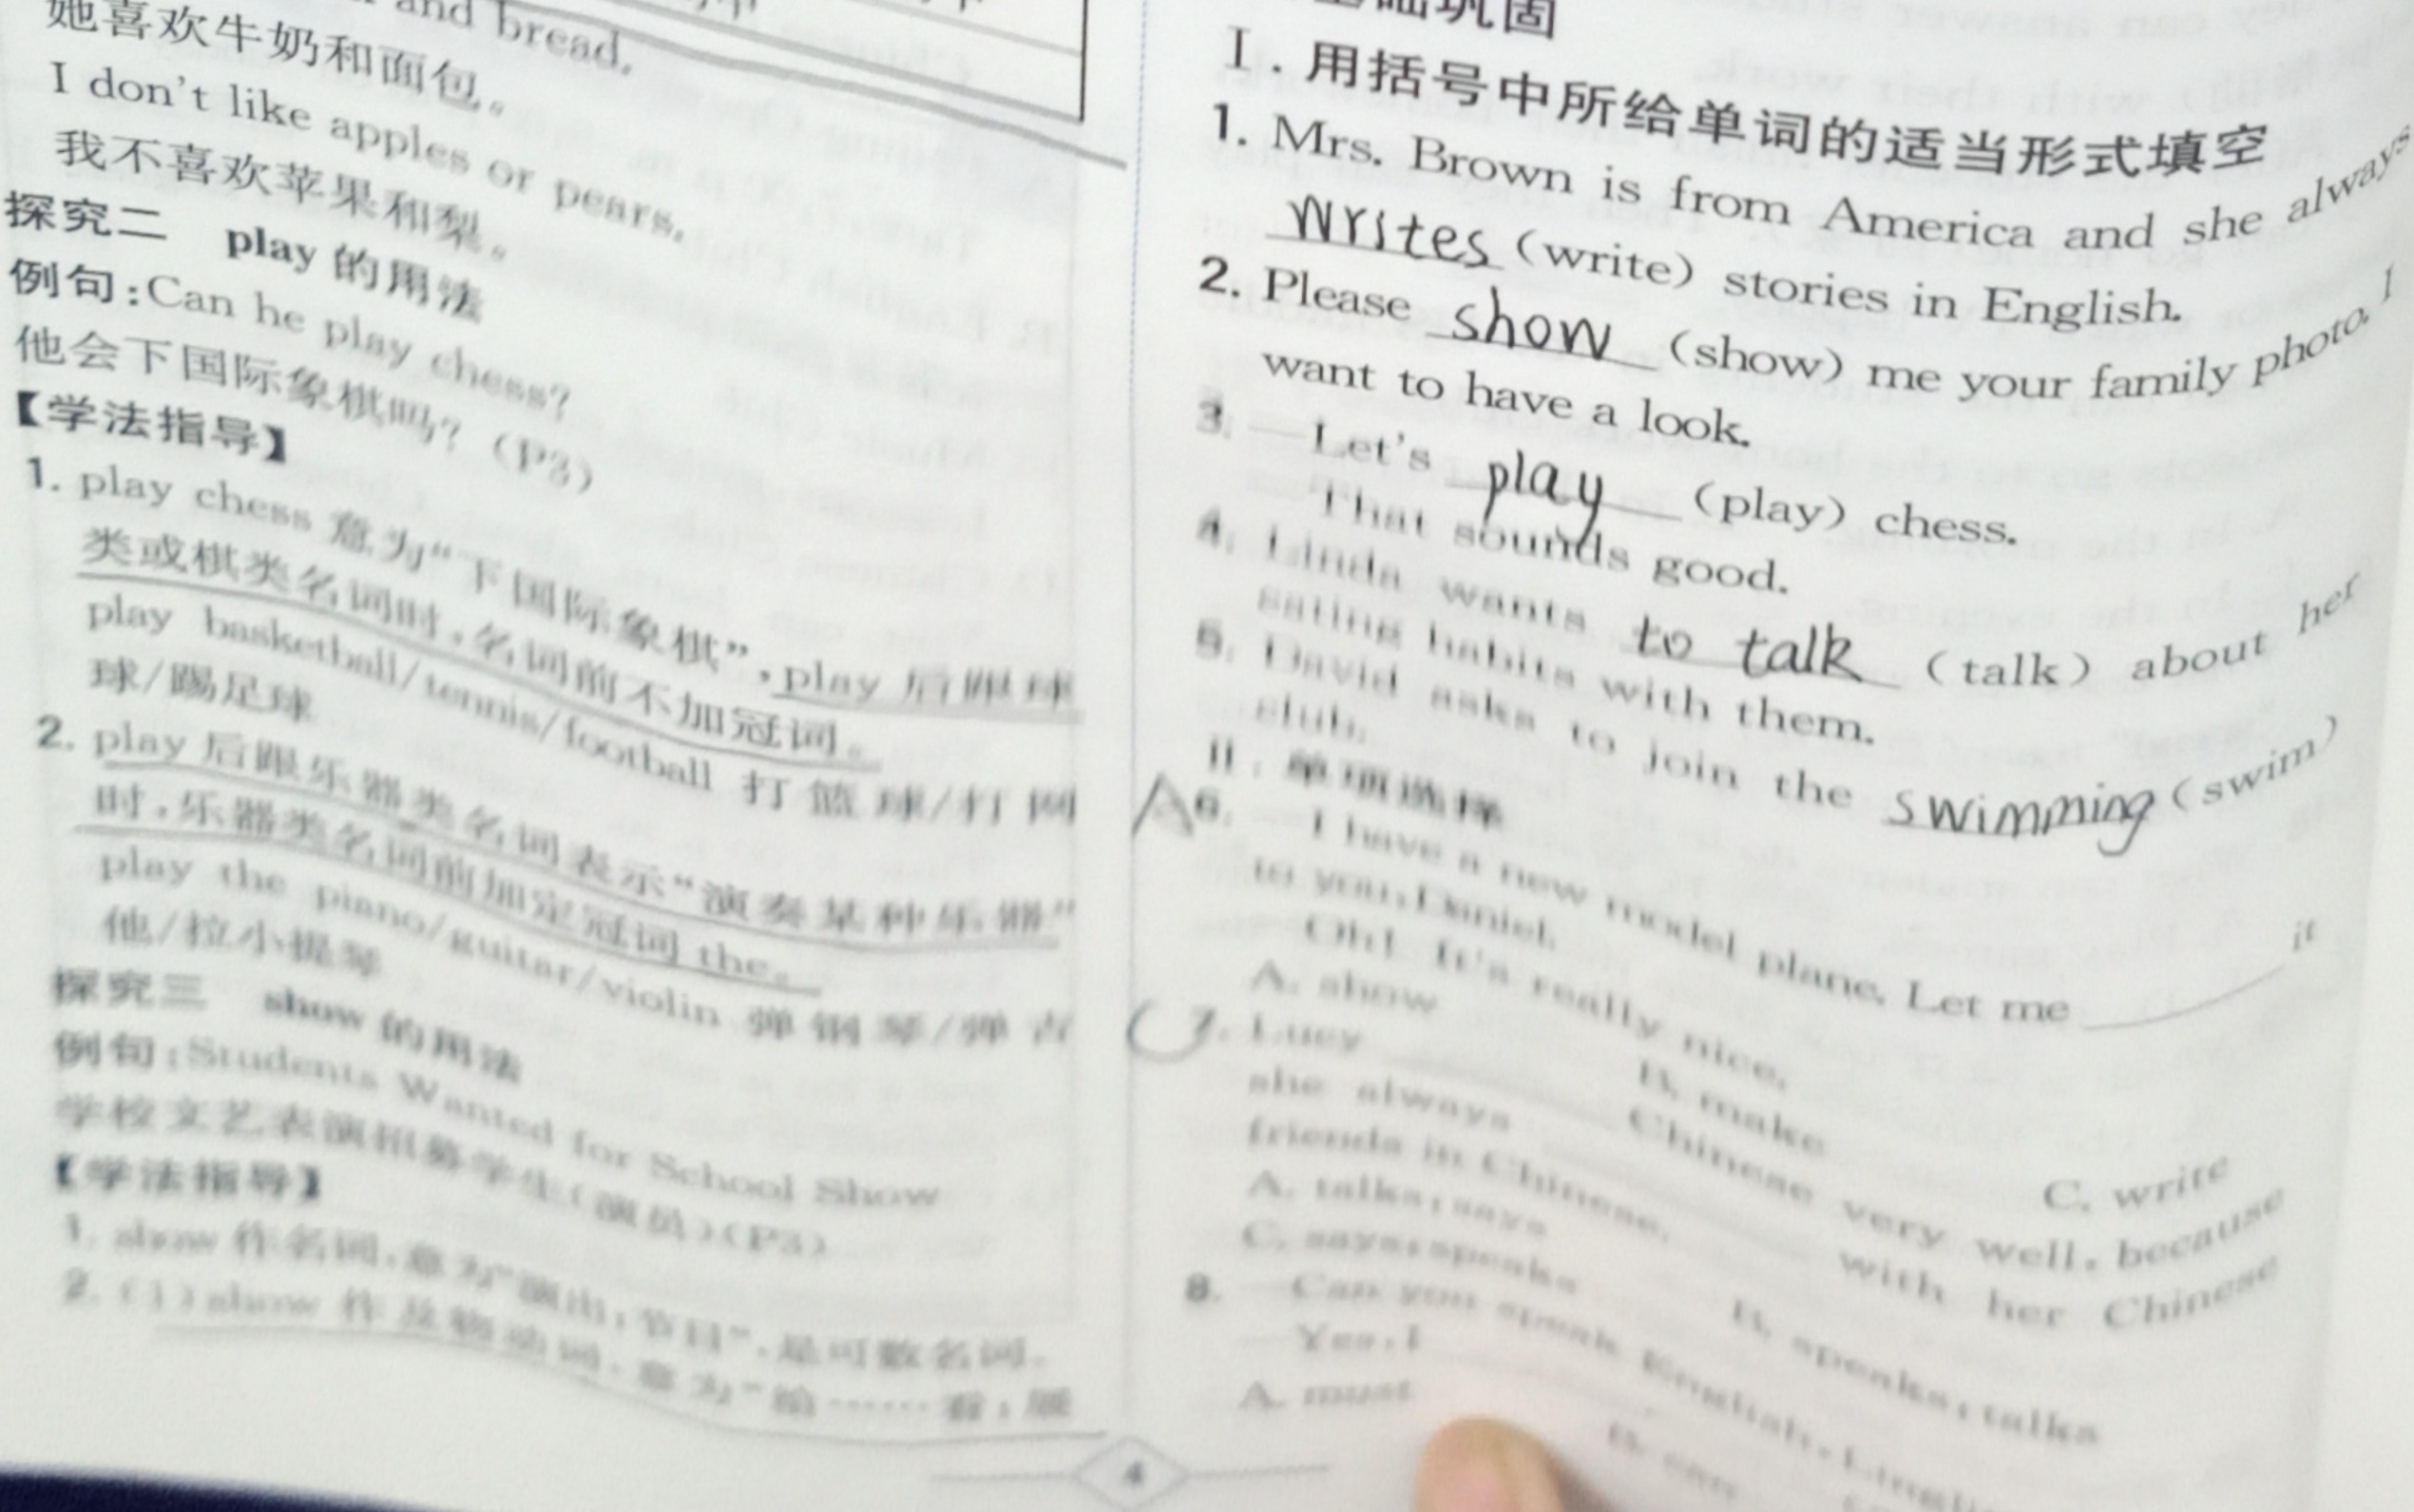 and bread.
她喜欢牛奶和面包。
I don't like apples or pears.
我不喜欢苹果和梨。
探究二 play 的用法
例句:Can he play chess?
他会下国际象棋吗?(P3)
【学法指导】
1. play chess 意为“下国际象棋”,play 后跟球
类或棋类名词时,名词前不加冠词。
play basketball/tennis/football 打篮球/打网
球/踢足球
2. play 后跟乐器类名词表示“演奏某种乐器”
时,乐器类名词前加定冠词 the。
play the piano/guitar/violin 弹钢琴/弹吉
他/拉小提琴
探究三 show 的用法
例句:Students Wanted for School Show
学校文艺表演招募学生(演员)(P3)
【学法指导】
1. show 作名词,意为“演出;节目”,是可数名词。
2. (1)show 作及物动词,意为“给……看;展
4
基础巩固
Ⅰ. 用括号中所给单词的适当形式填空
1. Mrs. Brown is from America and she always
writes (write) stories in English.
2. Please show (show) me your family photo. I
want to have a look.
3. —Let's play (play) chess.
—That sounds good.
4. Linda wants to talk (talk) about her
eating habits with them.
5. David asks to join the swimming (swim)
club.
Ⅱ. 单项选择
A 6. —I have a new model plane. Let me ______ it
to you, Daniel.
—Oh! It's really nice.
A. show B. make C. write
C 7. Lucy ______ Chinese very well, because
she always ______ with her Chinese
friends in Chinese.
A. talks; says B. speaks; talks
C. says; speaks
8. —Can you speak English,
—Yes, I
A. must B. can